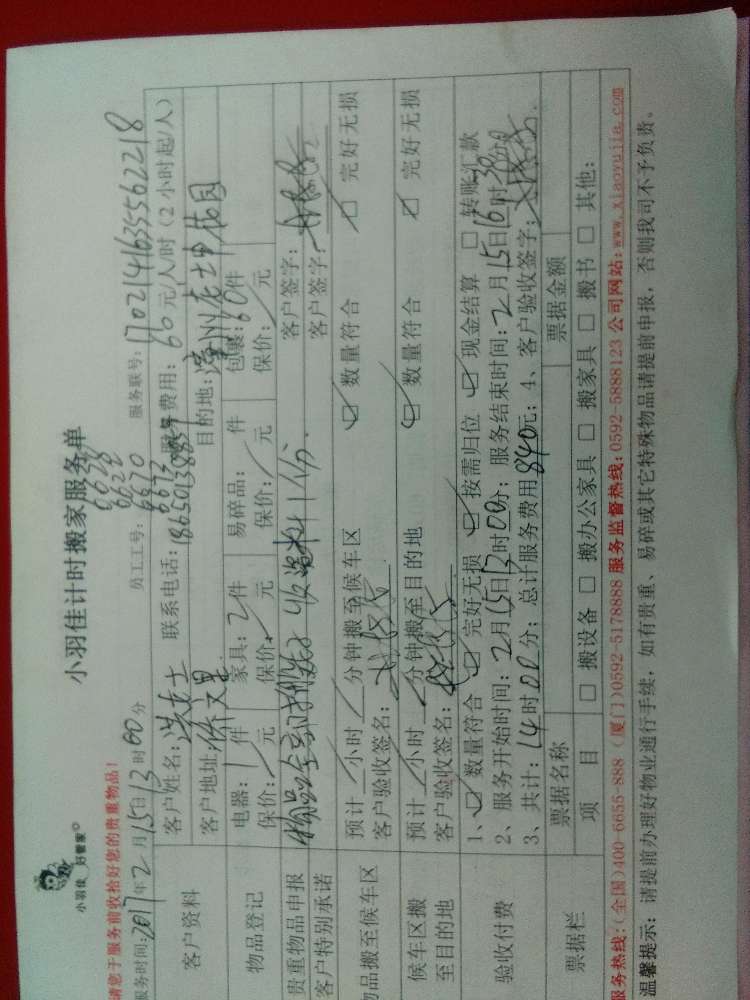 小羽佳 好管家
小羽佳计时搬家服务单
请您于服务前收拾好您的贵重物品!
6628
服务时间:2017年2月15日13时00分 员工工号:6670 服务联号:1702141635562218
6673
客户资料 客户姓名:洪女士 联系电话:18650138859 服务费用:60元/人/时(2小时起/人)
客户地址:侨文里 目的地:漳州 花园
物品登记 电器:1件 家具:2件 易碎品: 件 包裹:60件
保价: 元 保价: 元 保价: 元 保价: 元
贵重物品申报 物品全 1份 客户签字:
客户特别承诺 客户签字:
物品搬至候车区 预计 小时 分钟搬至候车区 数量符合 完好无损
客户验收签名:
候车区搬至目的地 预计 小时 分钟搬至目的地 数量符合 完好无损
客户验收签名:
验收付费 1、数量符合 完好无损 按需归位 现金结算 转账汇款
2、服务开始时间:2月15日13时00分;服务结束时间:2月15日16时30分
3、共计:14时00分;总计服务费用840元;4、客户验收签字:
票据栏 票据名称 票据金额
项 目 □ 搬设备 □ 搬办公家具 □ 搬家具 □ 搬书 □ 其他:
服务热线:(全国)400-6655-888 (厦门)0592-5178888 服务监督热线:0592-5888123 公司网站:www.xiaoyujia.com
温馨提示:请提前办理好物业通行手续,如有贵重、易碎或其它特殊物品请提前申报,否则我司不予负责。